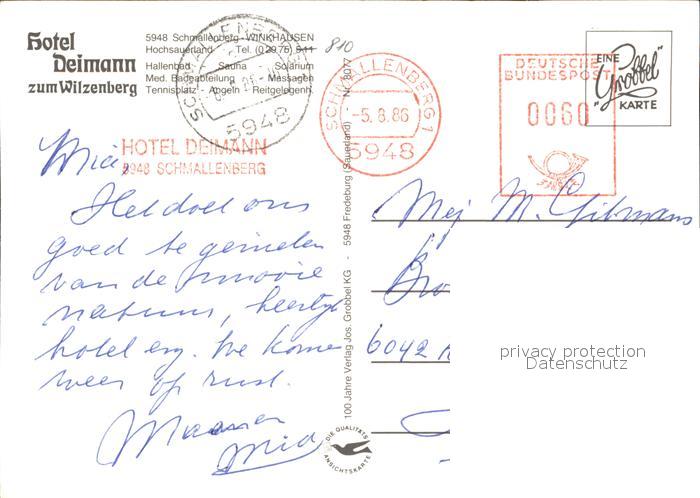 Hotel
Deimann
zum Wilzenberg
5948 Schmallenberg - WINKHAUSEN
Hochsauerland Tel. (02975)
Hallenbad Sauna Solarium
Med. Badeabteilung Massagen
Tennisplatz Angeln Reitgelegenh.
810
5948
HOTEL DEIMANN
5948 SCHMALLENBERG
SCHMALLENBERG 1
-5.8.86
5948
DEUTSCHE
BUNDESPOST
0060
EINE
"Grobbel"
KARTE
Het doet ons
goed te genieten
van de mooie
natuur, heerlijk
hotel enz. We komen
weer op rust.
100 Jahre Verlag Jos. Grobbel KG - 5948 Fredeburg (Sauerland) - Nr. 8077
DIE QUALITÄTS
ANSICHTSKARTE
Mej M.
Bro
6042
privacy protection
Datenschutz